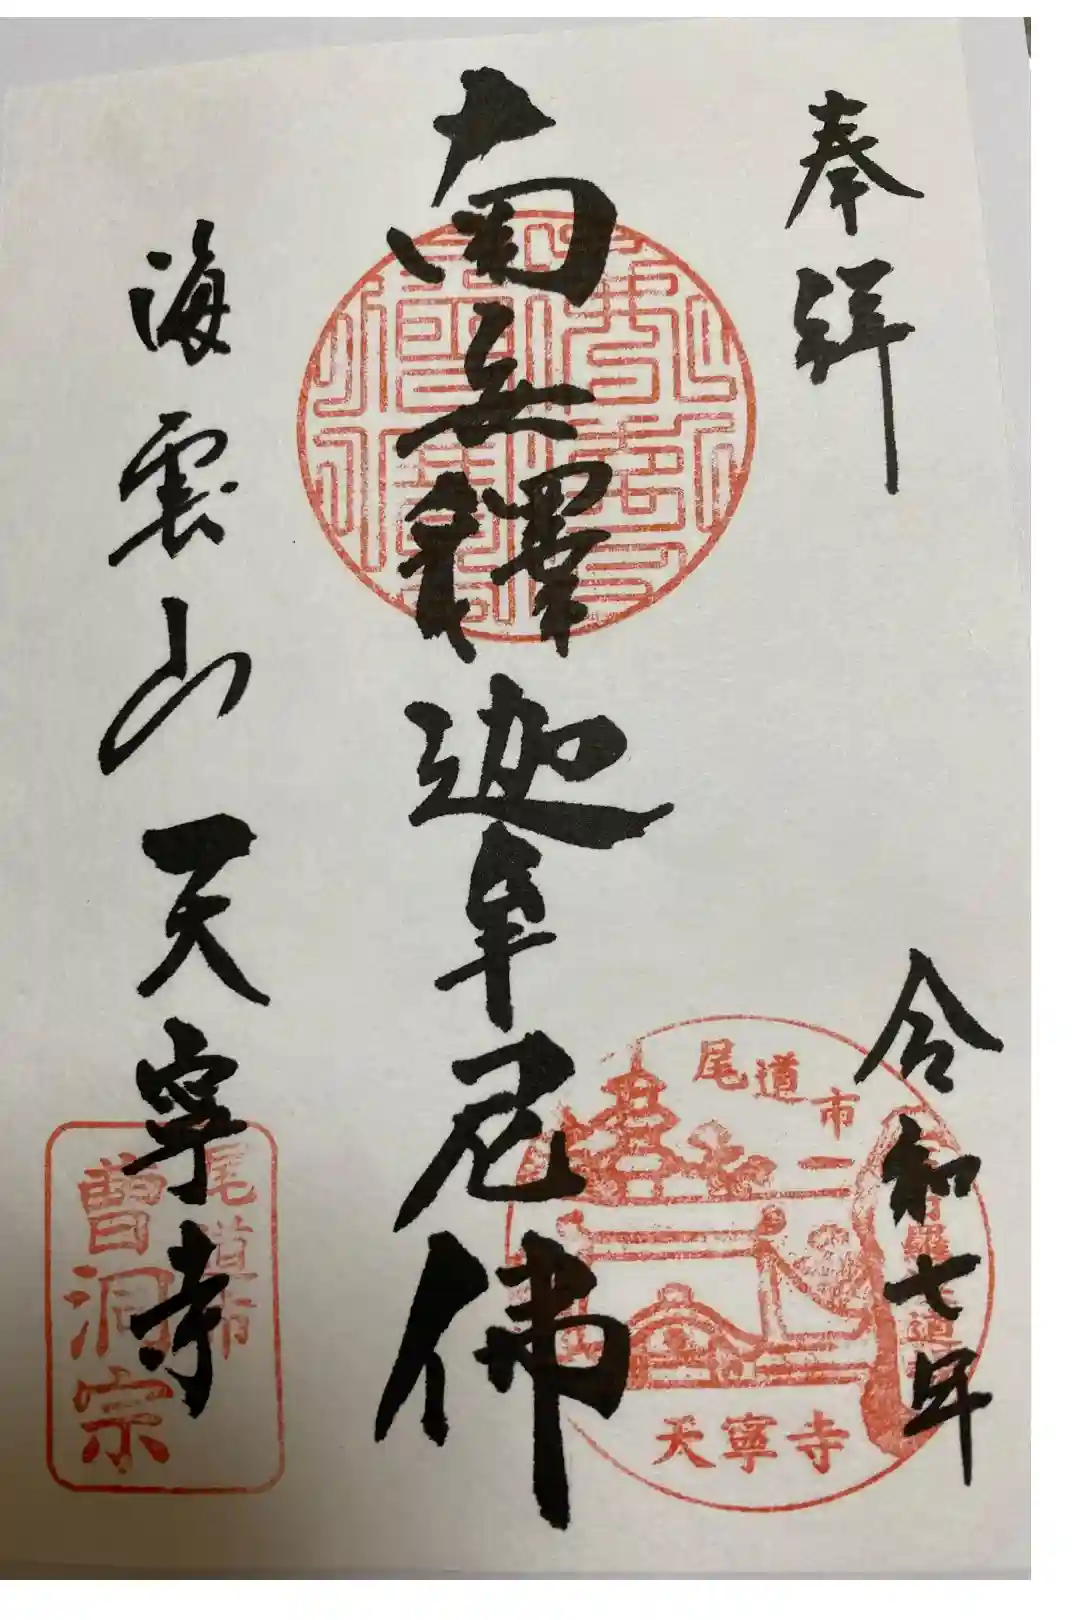 奉拝
令和七年
南無釋迦牟尼佛
海雲山天寧寺
尾道市
天寧寺
尾道市
曹洞宗